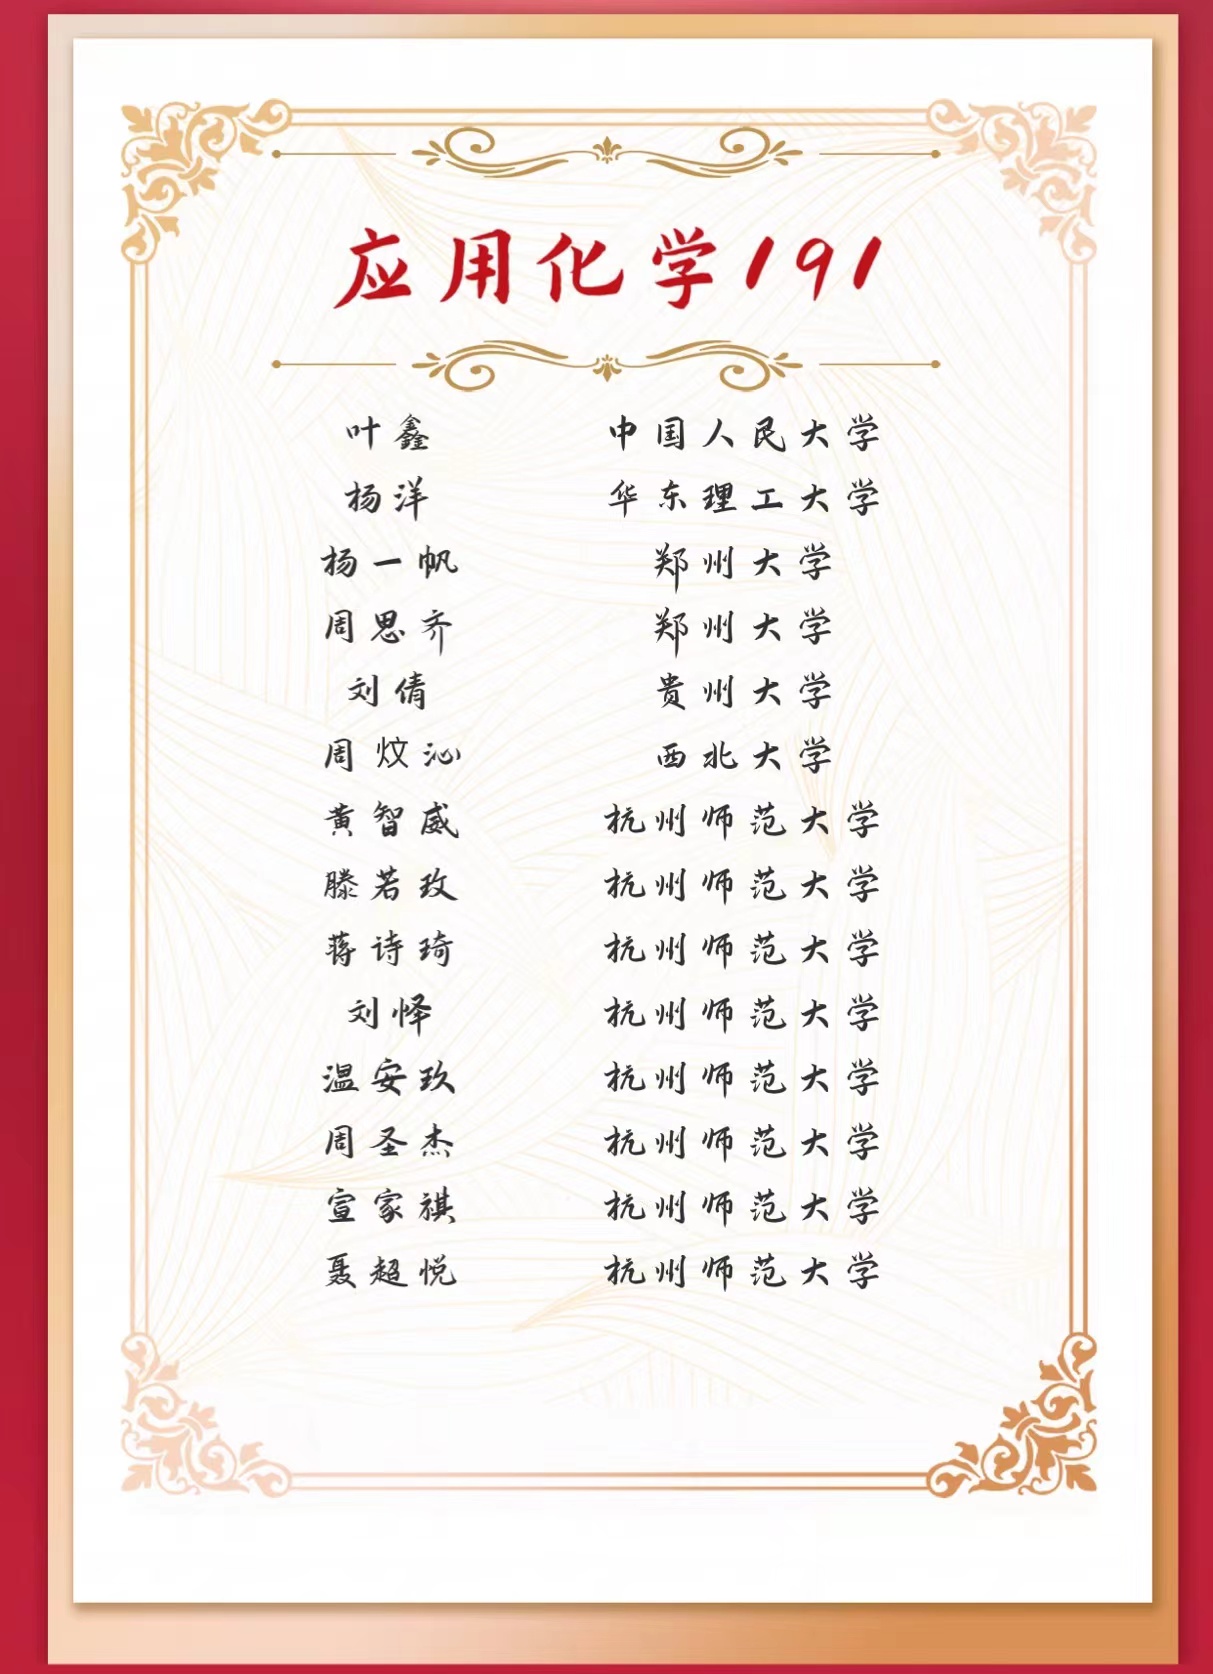 应用化学191
叶鑫 中国人民大学
杨洋 华东理工大学
杨一帆 郑州大学
周思齐 郑州大学
刘倩 贵州大学
周炆沁 西北大学
黄智威 杭州师范大学
滕若玫 杭州师范大学
蒋诗琦 杭州师范大学
刘怿 杭州师范大学
温安玖 杭州师范大学
周圣杰 杭州师范大学
宣家祺 杭州师范大学
聂超悦 杭州师范大学